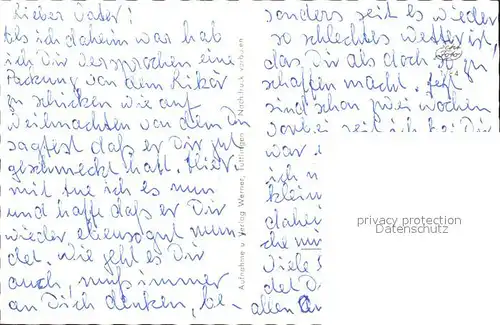 Lieber Vater!
Als ich daheim war hab
ich Dir versprochen eine
Packung von dem Likör
zu schicken wie auf
Weihnachten von dem Du
sagtest daß er Dir gut
geschmeckt hatt. Hier
mit tue ich es nun
und hoffe daß er Dir
wieder ebensogut mun-
det. Wie geht es Dir
auch, muß immer
an Dich denken, be-
Aufnahme u. Verlag Werner, Tuttlingen Nachdruck verboten
sonders seit es wieder
so schlechtes Wetter ist,
das Dir als doch so zu
schaffen macht. Jetzt
sind schon zwei Wochen
vorbei seit ich bei Dir
war
ich
klein
dahei
che
Viele
det
allen
privacy protection
Datenschutz